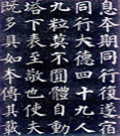 息本期同行復遂宿
同行大德四十九人
九粒莫不圓體自動
塔下表至敬也使夫
既多具如本傳其載